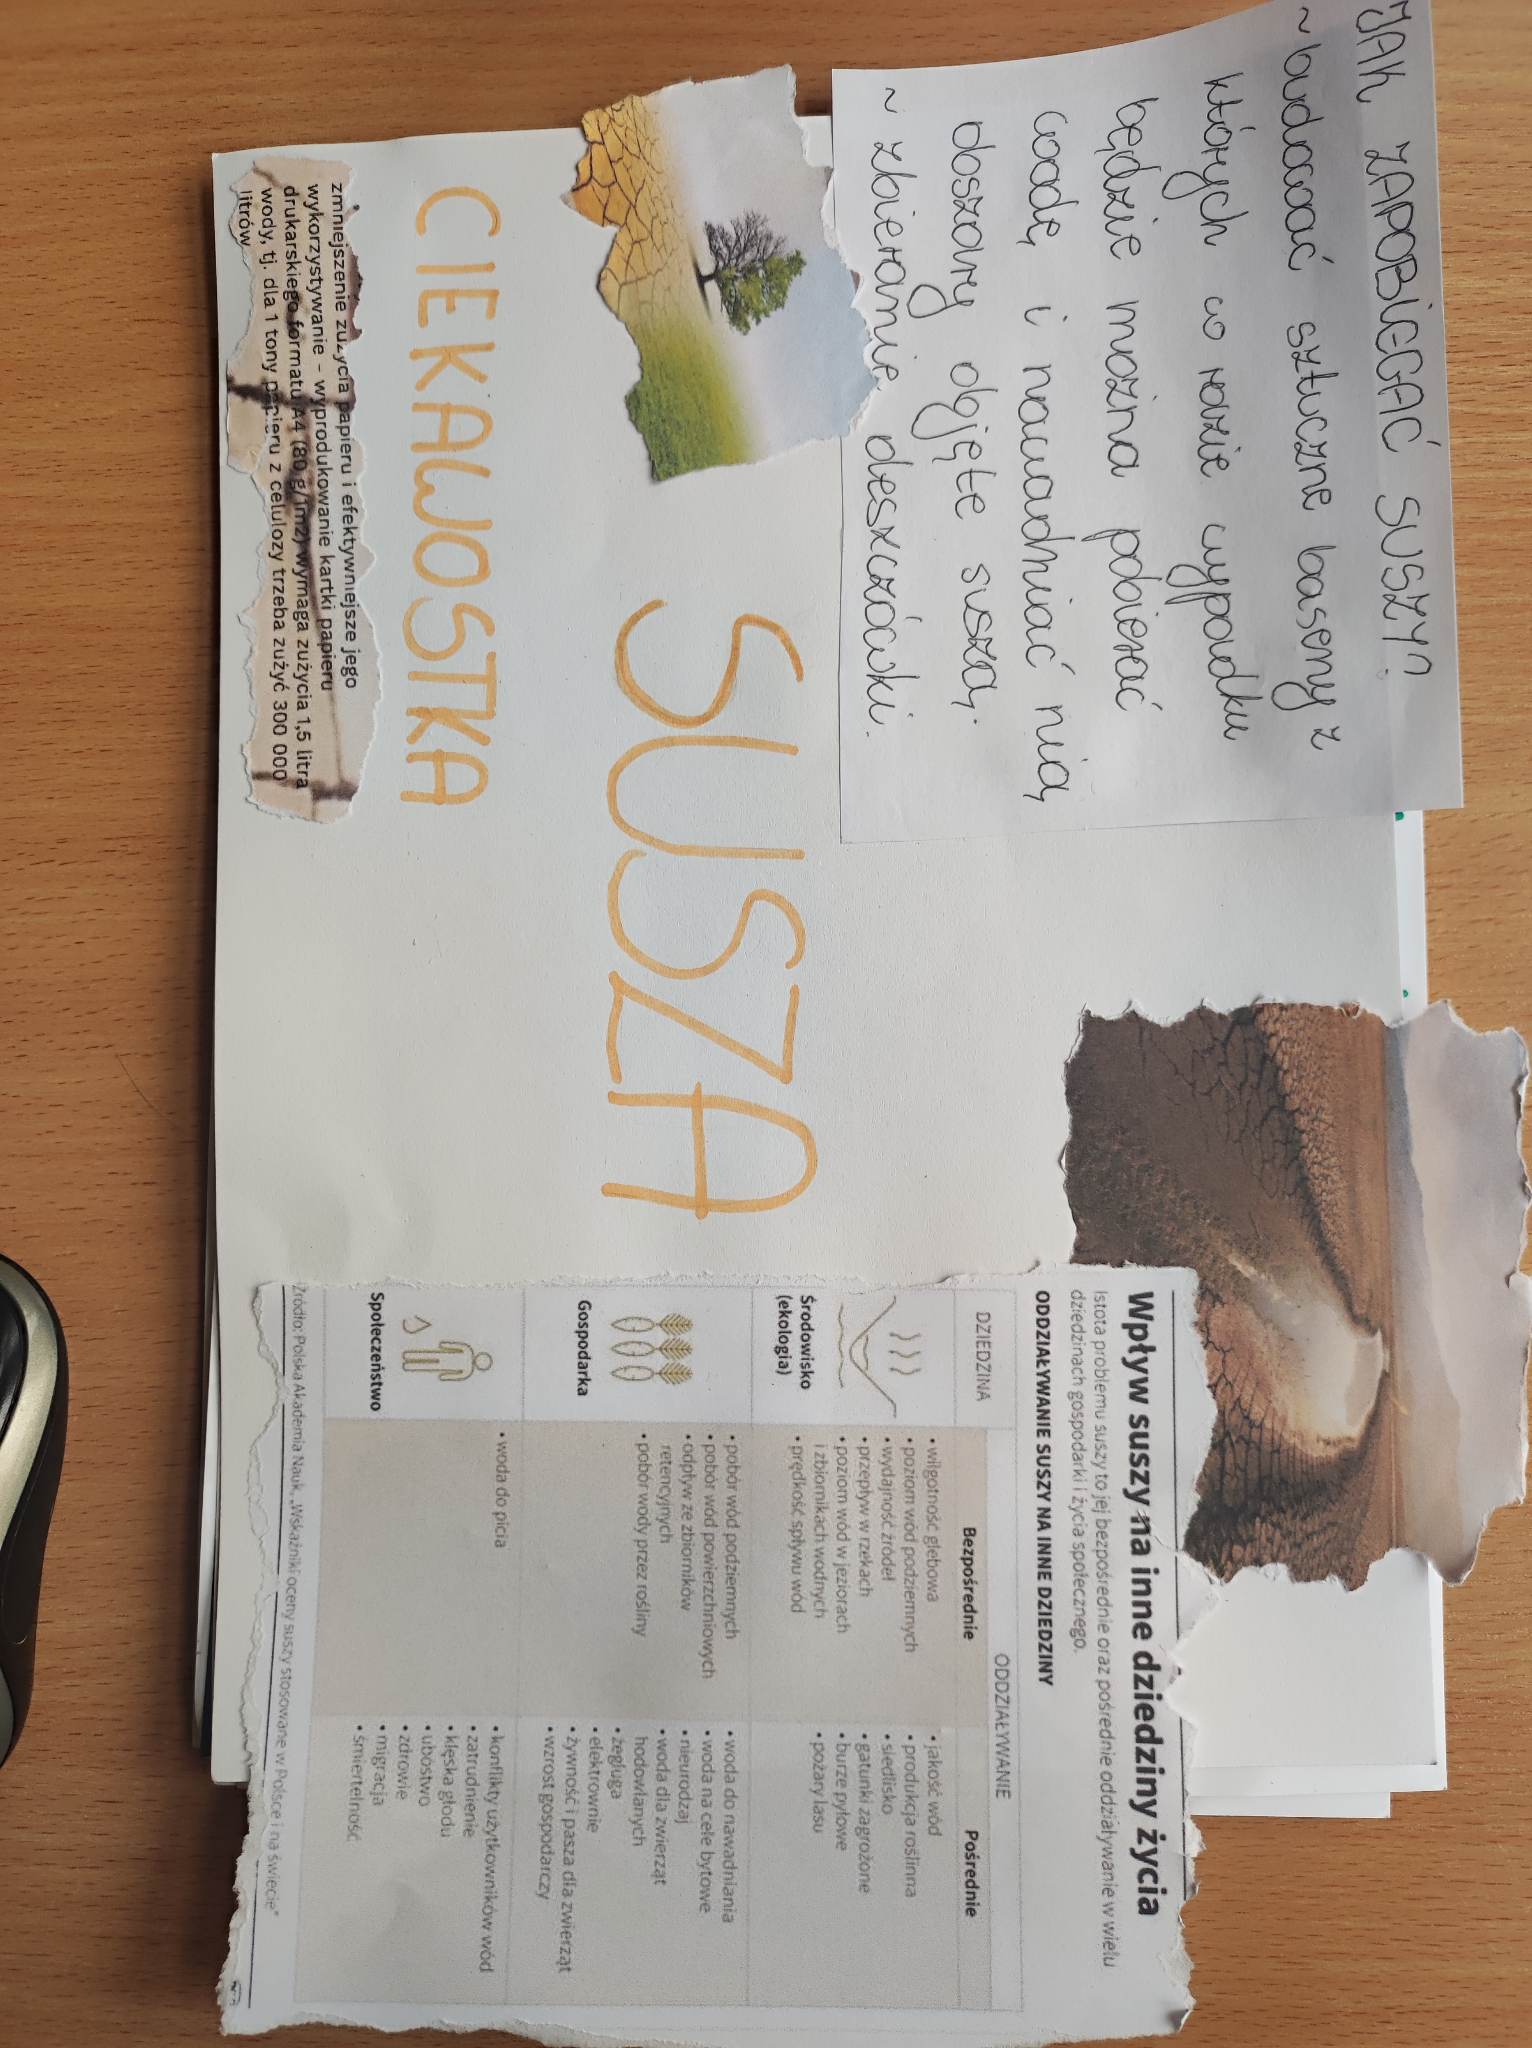 JAK ZAPOBIEGAĆ SUSZY?
~ budować sztuczne baseny z
których w razie wypadku
będzie można pobierać
wodę i nawadniać nią
obszary objęte suszą.
~ zbieranie deszczówki.
SUSZA
CIEKAWOSTKA
zmniejszenie zużycia papieru i efektywniejsze jego
wykorzystywanie – wyprodukowanie kartki papieru
drukarskiego formatu A4 (80 g/1m2) wymaga zużycia 1,5 litra
wody, tj. dla 1 tony papieru z celulozy trzeba zużyć 300 000
litrów
Wpływ suszy na inne dziedziny życia
Istota problemu suszy to jej bezpośrednie oraz pośrednie oddziaływanie w wielu
dziedzinach gospodarki i życia społecznego.
ODDZIAŁYWANIE SUSZY NA INNE DZIEDZINY
DZIEDZINA
ODDZIAŁYWANIE
Bezpośrednie
Pośrednie
Środowisko
(ekologia)
• wilgotność glebowa
• poziom wód podziemnych
• wydajność źródeł
• przepływ w rzekach
• poziom wód w jeziorach
i zbiornikach wodnych
• prędkość spływu wód
• jakość wód
• produkcja roślinna
• siedlisko
• gatunki zagrożone
• burze pyłowe
• pożary lasu
Gospodarka
• pobór wód podziemnych
• pobór wód powierzchniowych
• odpływ ze zbiorników
retencyjnych
• pobór wody przez rośliny
• woda do nawadniania
• woda na cele bytowe
• nieurodzaj
• woda dla zwierząt
hodowlanych
• żegluga
• elektrownie
• żywność i pasza dla zwierząt
• wzrost gospodarczy
Społeczeństwo
• woda do picia
• konflikty użytkowników wód
• zatrudnienie
• klęska głodu
• ubóstwo
• zdrowie
• migracja
• śmiertelność
Źródło: Polska Akademia Nauk, „Wskaźniki oceny suszy stosowane w Polsce i na świecie"